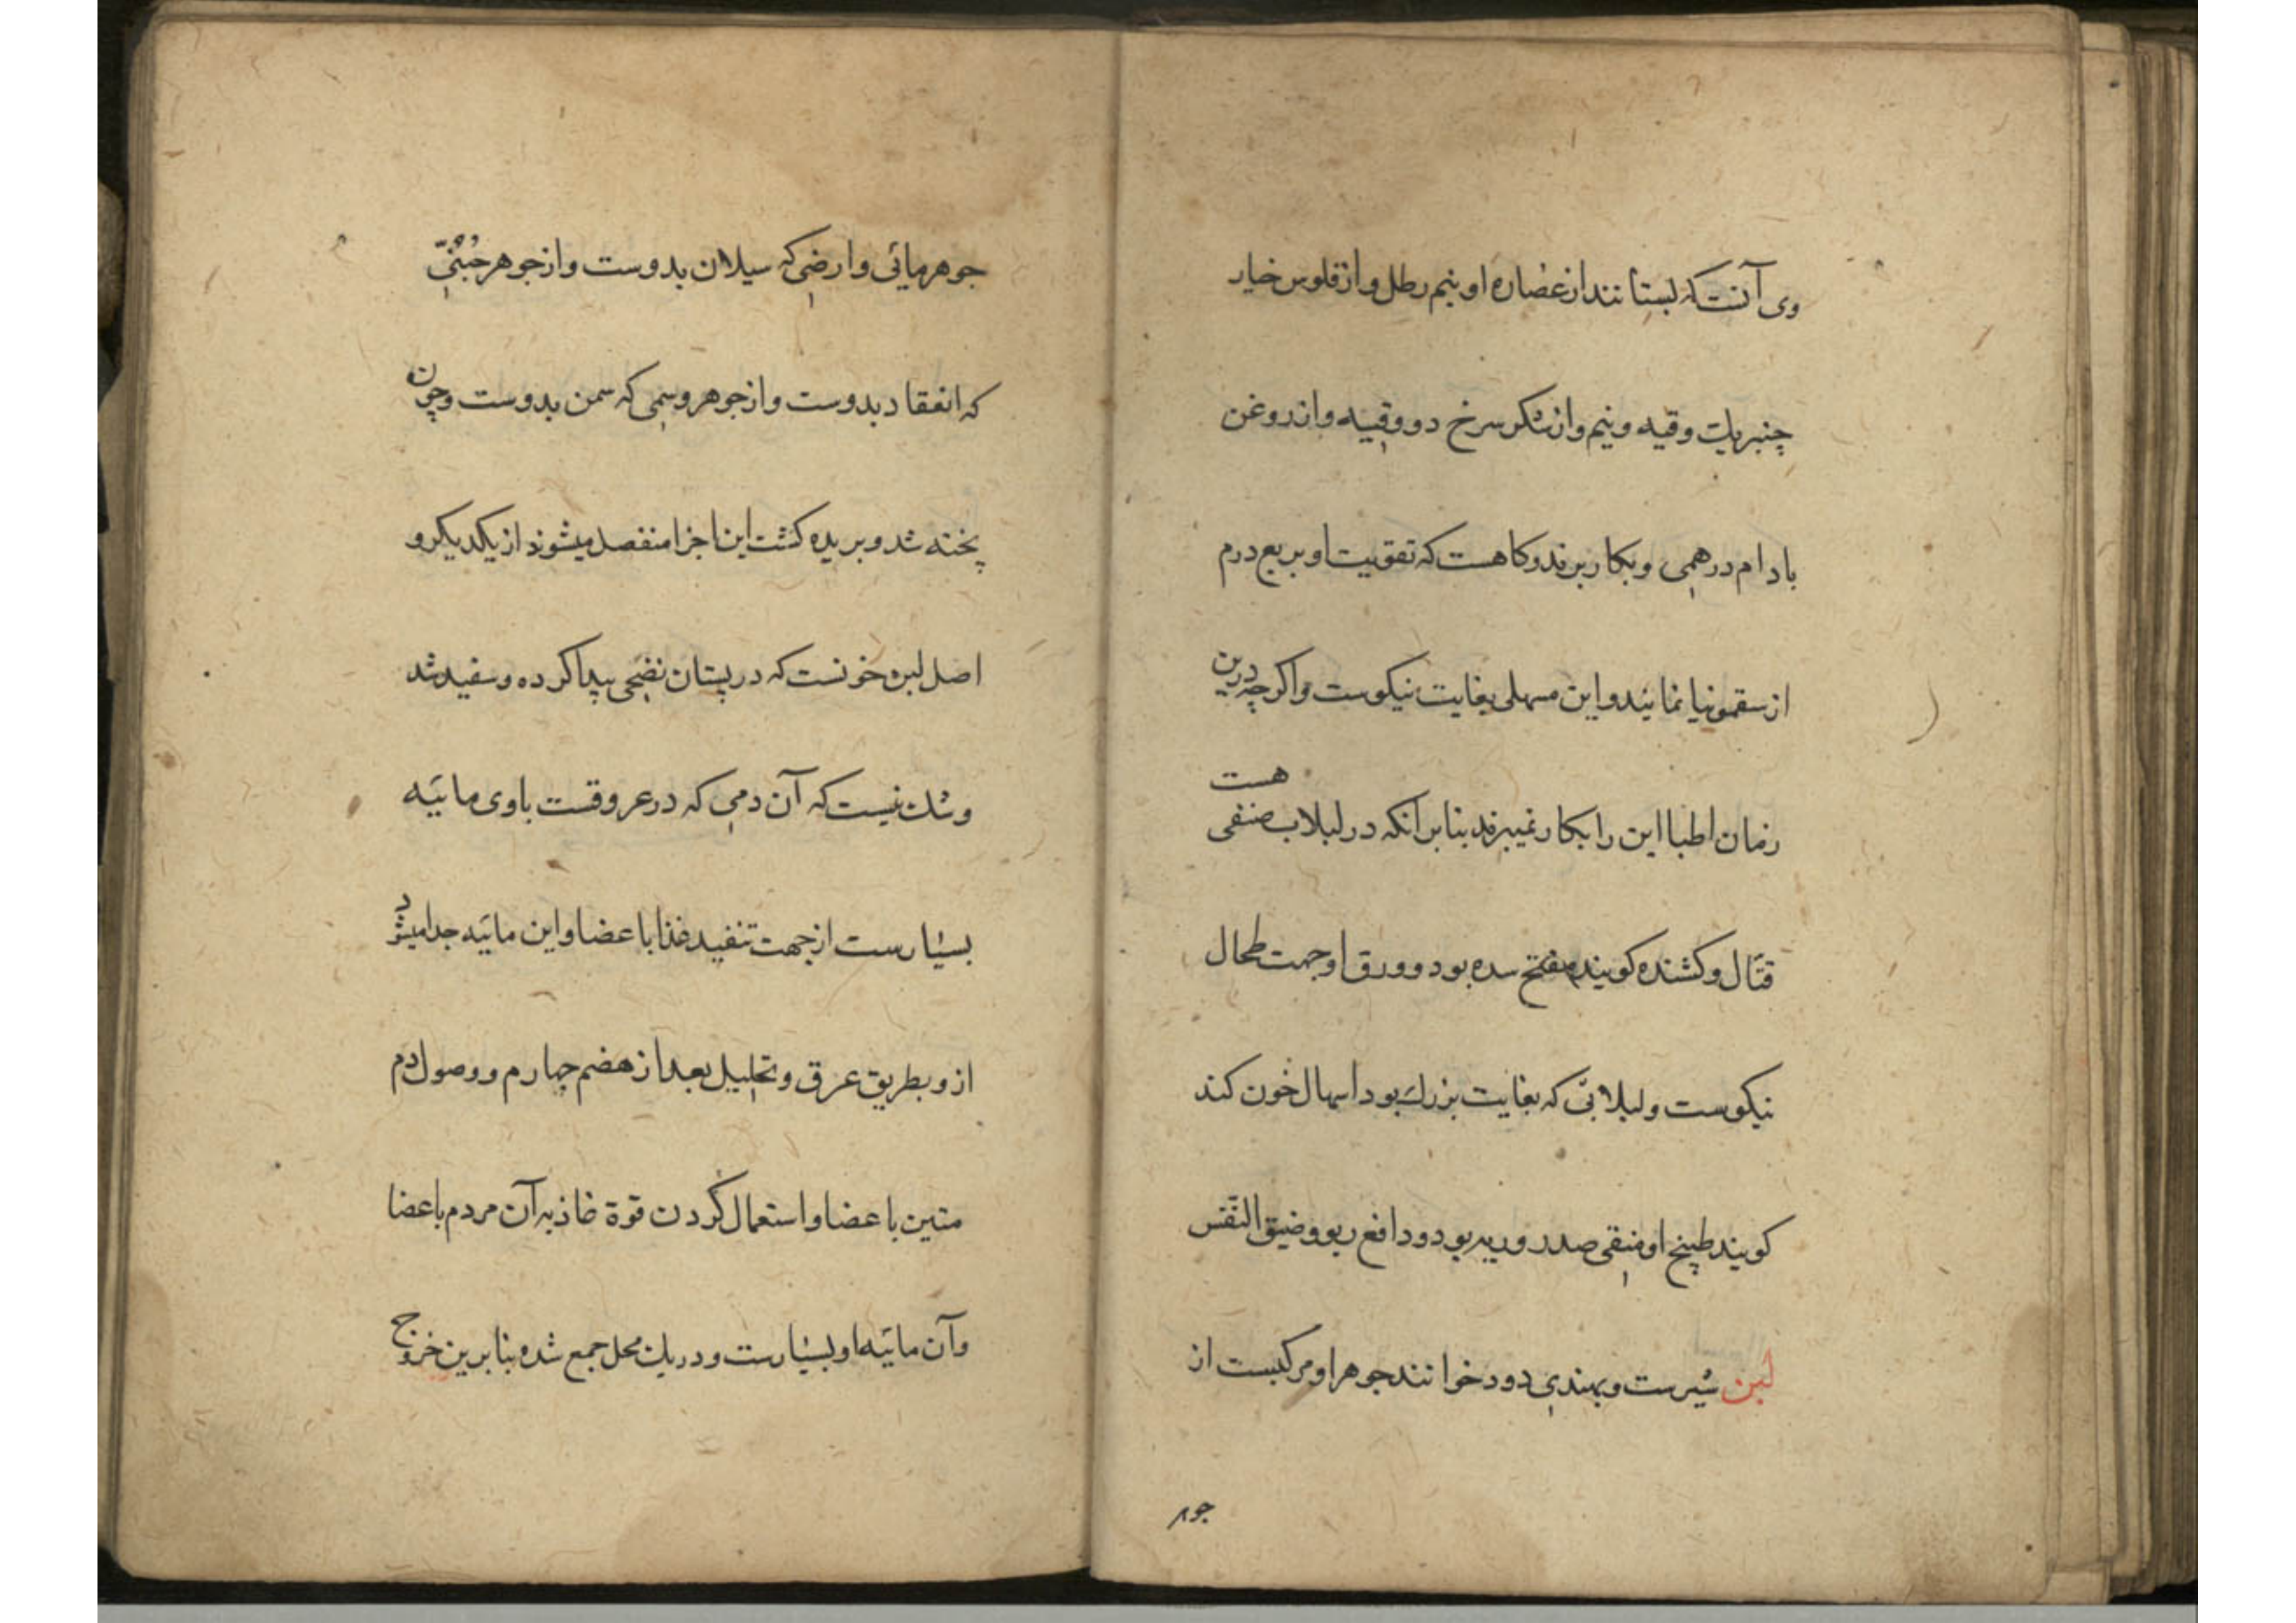 وی آنست که بستانند از عصاره او نیم رطل و از فلوس خیار
چنبر یک وقیه و نیم و از شکر سرخ دو وقیه و از روغن
بادام درهمی و بکار برند و کاهست که تقویت او بربع درم
از سقمونیا نمایند و این مسهلی بغایت نیکوست و اکرچه درین
زمان اطبا این را بکار نمیبرند بنابر انکه در لبلاب صنفی هست
قتال و کشنده کویند مفتح سده بود و ورق او جهت طحال
نیکوست و لبلابی که بغایت بزرک بود اسهال خون کند
کویند طبیخ او منقی صدر و ریه بود و دافع ربو و ضیق النفس
لبن شیرست و بهندی دود خوانند جوهر او مرکبست از
جوهر
جوهر مائی و ارضی که سیلان بدوست و از جوهر جبنی
که انعقاد بدوست و از جوهر وسمی که سمن بدوست و چون
پخته شد و بریده کشت این اجزا منفصل میشوند از یکدیکر و
اصل لبن خونست که در پستان نضجی پیدا کرده و سفید شد
و شک نیست که آن دمی که در عروقست با وی مائیه
بسیارست از جهت تنفید غذا باعضا و این مائیه جدا میشود
ازو بطریق عرق و تحلیل بعد از هضم چهارم و وصول دم
متین باعضا و استعمال کردن قوة غاذیه آن مردم باعضا
و آن مائیه او بسیارست و در یک محل جمع شده بنابرین خروج